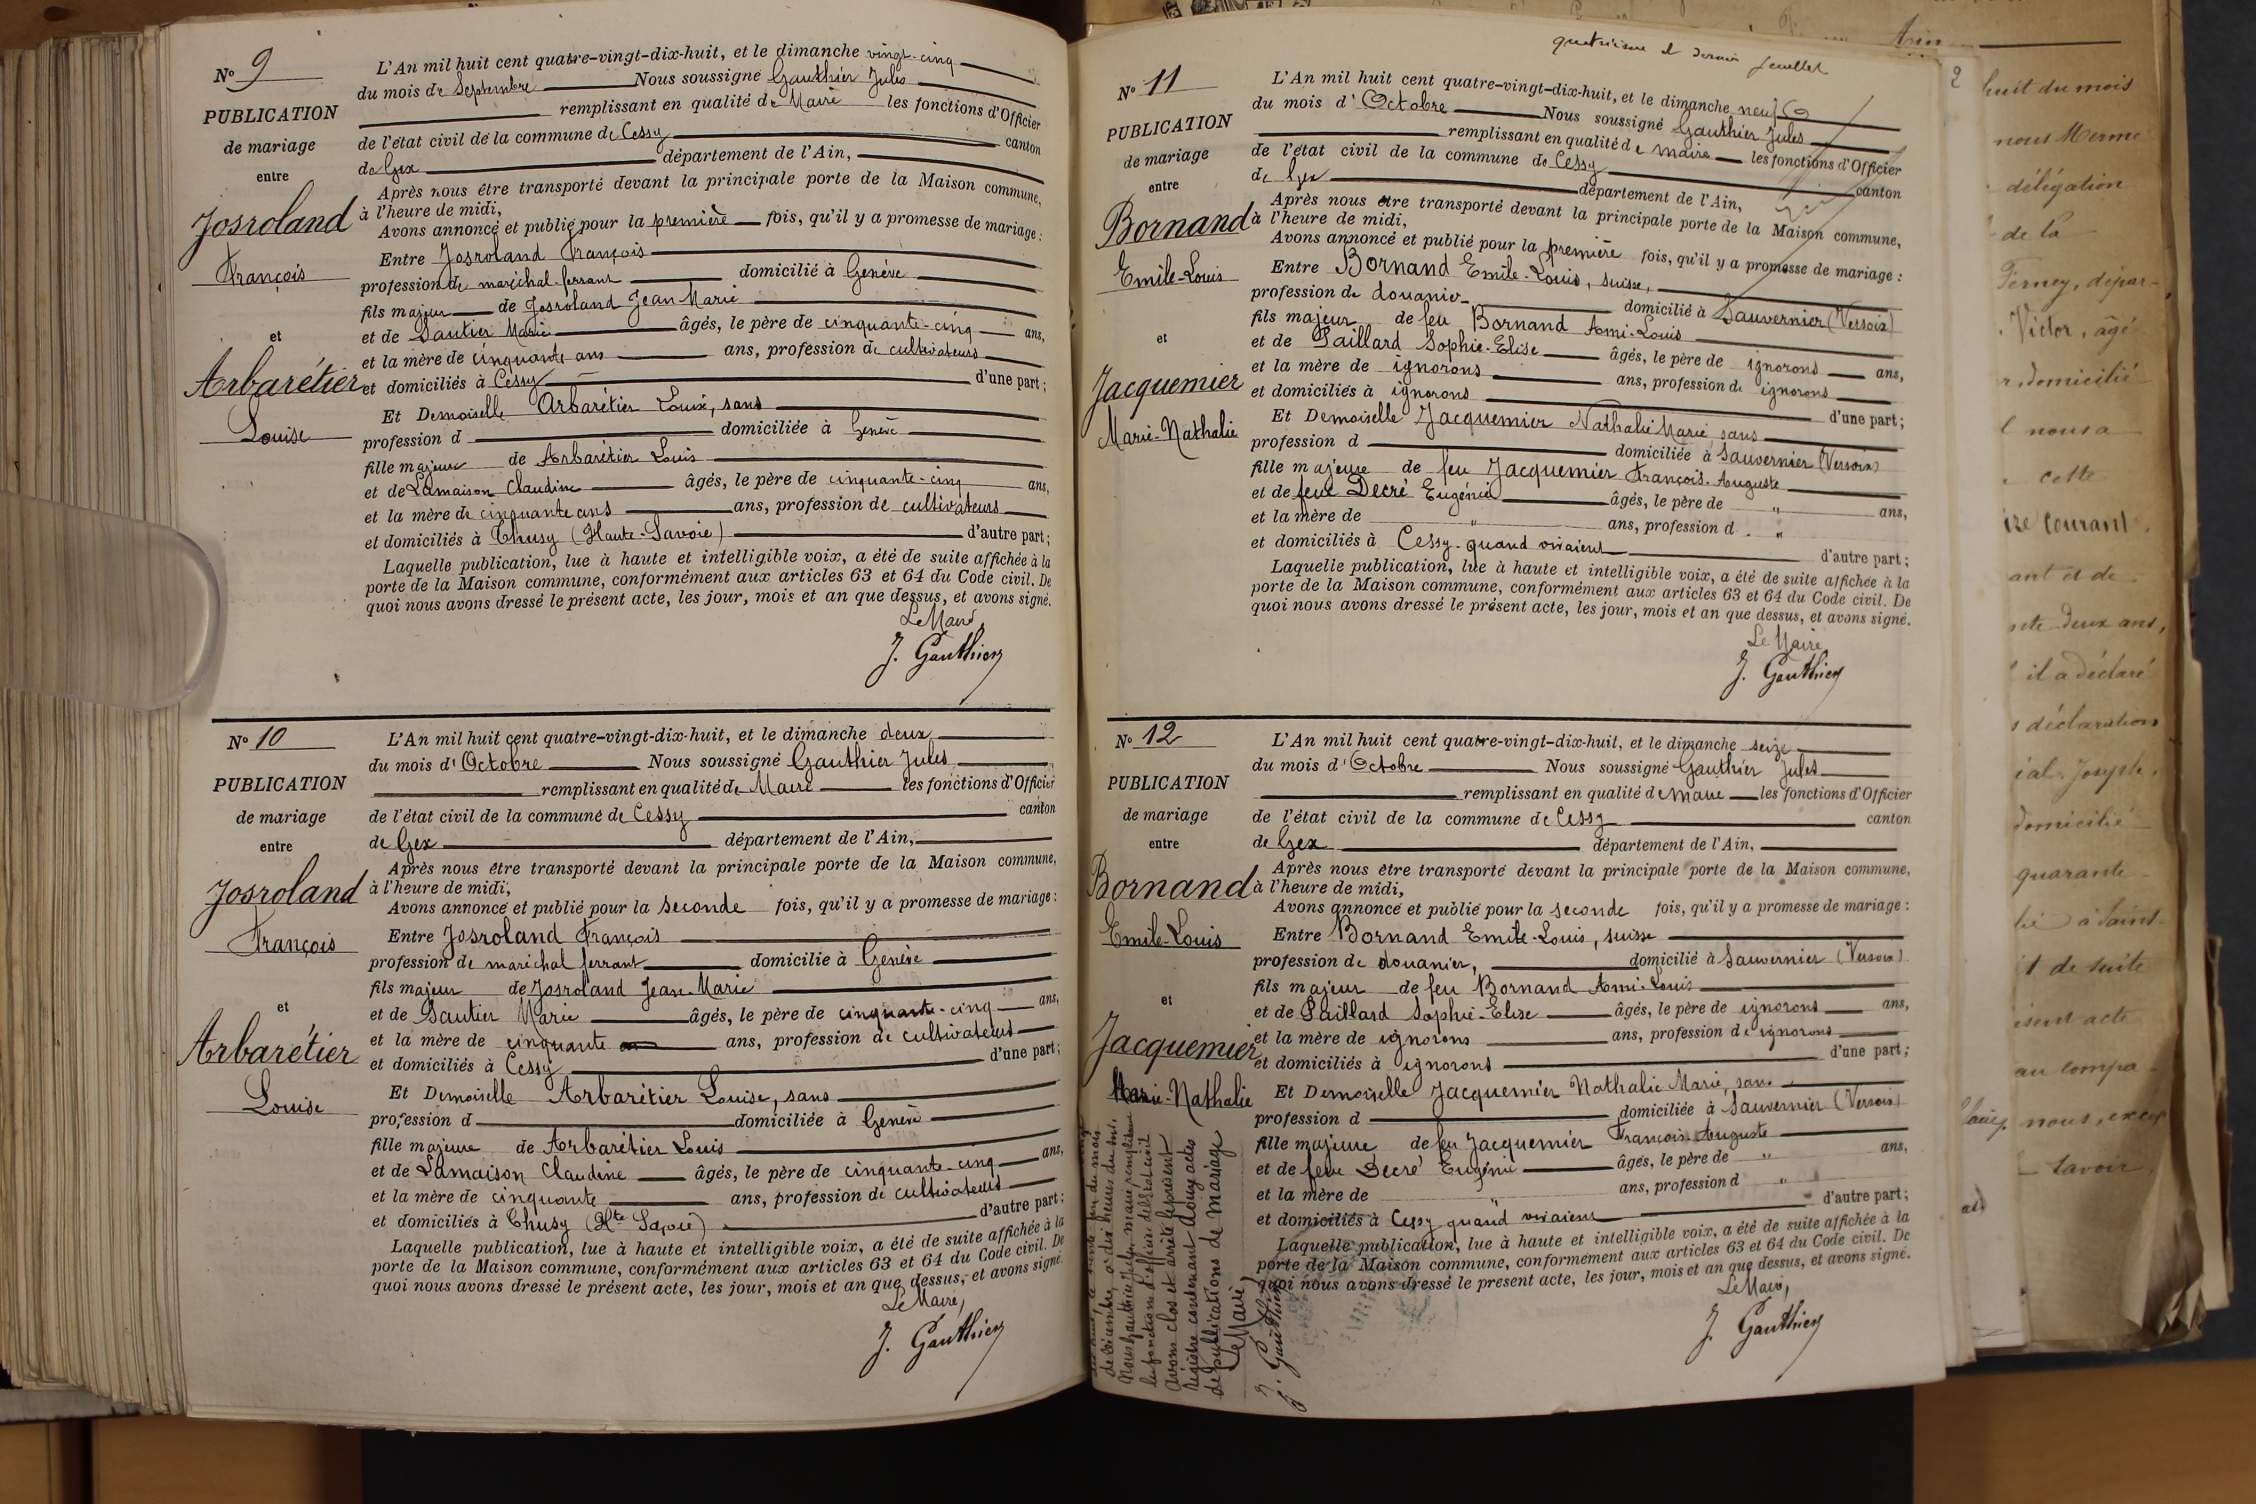 N° 9
PUBLICATION
de mariage
entre
Josroland
François
et
Arbarétier
Louise
L'An mil huit cent quatre-vingt-dix-huit, et le dimanche vingt-cinq
du mois de Septembre Nous soussigné Gauthier Jules
remplissant en qualité de Maire les fonctions d'Officier
de l'état civil de la commune de Cessy canton
de Gex département de l'Ain,
Après nous être transporté devant la principale porte de la Maison commune,
à l'heure de midi,
Avons annoncé et publié pour la première fois, qu'il y a promesse de mariage :
Entre Josroland François
profession de maréchal-ferrant domicilié à Genève
fils majeur de Josroland Jean Marie
et de Gautier Marie âgés, le père de cinquante-cinq ans,
et la mère de cinquante ans ans, profession de cultivateurs
et domiciliés à Cessy d'une part ;
Et Demoiselle Arbarétier Louise, sans
profession d domiciliée à Genève
fille majeure de Arbarétier Louis
et de Lamaison Claudine âgés, le père de cinquante-cinq ans,
et la mère de cinquante ans ans, profession de cultivateurs
et domiciliés à Thusy (Haute-Savoie) d'autre part ;
Laquelle publication, lue à haute et intelligible voix, a été de suite affichée à la
porte de la Maison commune, conformément aux articles 63 et 64 du Code civil. De
quoi nous avons dressé le présent acte, les jour, mois et an que dessus, et avons signé.
Le Maire,
J. Gauthier
N° 10
PUBLICATION
de mariage
entre
Josroland
François
et
Arbarétier
Louise
L'An mil huit cent quatre-vingt-dix-huit, et le dimanche deux
du mois d'Octobre Nous soussigné Gauthier Jules
remplissant en qualité de Maire les fonctions d'Officier
de l'état civil de la commune de Cessy canton
de Gex département de l'Ain,
Après nous être transporté devant la principale porte de la Maison commune,
à l'heure de midi,
Avons annoncé et publié pour la seconde fois, qu'il y a promesse de mariage :
Entre Josroland François
profession de maréchal ferrant domicilié à Genève
fils majeur de Josroland Jean-Marie
et de Gautier Marie âgés, le père de cinquante-cinq ans,
et la mère de cinquante ans, profession de cultivateurs
et domiciliés à Cessy d'une part ;
Et Demoiselle Arbarétier Louise, sans
profession d domiciliée à Genève
fille majeure de Arbarétier Louis
et de Lamaison Claudine âgés, le père de cinquante-cinq ans,
et la mère de cinquante ans, profession de cultivateurs
et domiciliés à Thusy (Hte Savoie) d'autre part ;
Laquelle publication, lue à haute et intelligible voix, a été de suite affichée à la
porte de la Maison commune, conformément aux articles 63 et 64 du Code civil. De
quoi nous avons dressé le présent acte, les jour, mois et an que dessus, et avons signé.
Le Maire,
J. Gauthier
quatrième et dernier feuillet
N° 11
PUBLICATION
de mariage
entre
Bornand
Emile-Louis
et
Jacquemier
Marie-Nathalie
L'An mil huit cent quatre-vingt-dix-huit, et le dimanche neuf
du mois d'Octobre Nous soussigné Gauthier Jules
remplissant en qualité de maire les fonctions d'Officier
de l'état civil de la commune de Cessy canton
de Gex département de l'Ain,
Après nous être transporté devant la principale porte de la Maison commune,
à l'heure de midi,
Avons annoncé et publié pour la première fois, qu'il y a promesse de mariage :
Entre Bornand Emile-Louis, suisse,
profession de douanier domicilié à Sauvernier (Versoix)
fils majeur de feu Bornand Ami-Louis
et de Paillard Sophie-Elise âgés, le père de ignorons ans,
et la mère de ignorons ans, profession de ignorons
et domiciliés à ignorons d'une part ;
Et Demoiselle Jacquemier Nathalie Marie, sans
profession d domiciliée à Sauvernier (Versoix)
fille majeure de feu Jacquemier François-Auguste
et de feue Decré Eugénie âgés, le père de " ans,
et la mère de " ans, profession d "
et domiciliés à Cessy quand vivaient d'autre part ;
Laquelle publication, lue à haute et intelligible voix, a été de suite affichée à la
porte de la Maison commune, conformément aux articles 63 et 64 du Code civil. De
quoi nous avons dressé le présent acte, les jour, mois et an que dessus, et avons signé.
Le Maire
J. Gauthier
N° 12
PUBLICATION
de mariage
entre
Bornand
Emile-Louis
et
Jacquemier
Marie-Nathalie
L'An mil huit cent quatre-vingt-dix-huit, et le dimanche seize
du mois d'Octobre Nous soussigné Gauthier Jules
remplissant en qualité de maire les fonctions d'Officier
de l'état civil de la commune de Cessy canton
de Gex département de l'Ain,
Après nous être transporté devant la principale porte de la Maison commune,
à l'heure de midi,
Avons annoncé et publié pour la seconde fois, qu'il y a promesse de mariage :
Entre Bornand Emile-Louis, suisse
profession de douanier, domicilié à Sauvernier (Versoix)
fils majeur de feu Bornand Ami-Louis
et de Paillard Sophie-Elise âgés, le père de ignorons ans,
et la mère de ignorons ans, profession de ignorons
et domiciliés à ignorons d'une part ;
Et Demoiselle Jacquemier Nathalie Marie, sans
profession d domiciliée à Sauvernier (Versoix)
fille majeure de feu Jacquemier François-Auguste
et de feue Decré Eugénie âgés, le père de " ans,
et la mère de " ans, profession d "
et domiciliés à Cessy quand vivaient d'autre part ;
Laquelle publication, lue à haute et intelligible voix, a été de suite affichée à la
porte de la Maison commune, conformément aux articles 63 et 64 du Code civil. De
quoi nous avons dressé le présent acte, les jour, mois et an que dessus, et avons signé.
Le Maire,
J. Gauthier
décembre, à dix heures du
Nous Gauthier Jules, maire remplissant
les fonctions d'officier de l'état civil
Avons clos et arrêté le présent
registre contenant douze actes
de publications de mariage
Le Maire,
J. Gauthier
Ain
2
huit du mois
nous Merme
délégation
de la
Ferney, dépar-
Victor, âgé
domicilié
nous a
cette
ize courant,
ant et de
nte deux ans,
il a déclaré
déclaration
ial Joseph,
domicilié
quarante
lié à Saint-
it de suite
ésent acte
au compa-
nous, excep
savoir